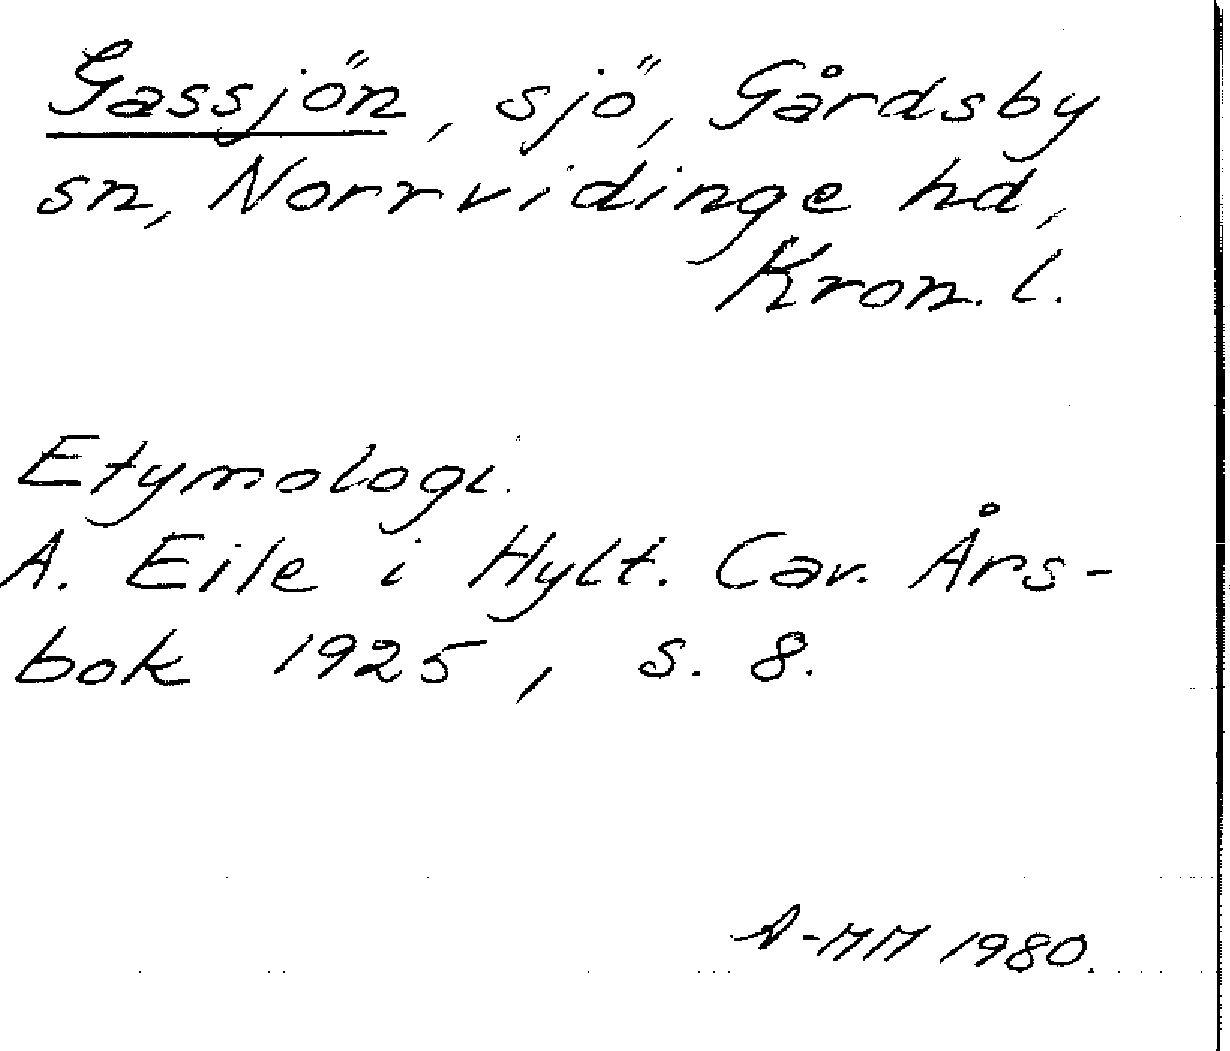 Gassjön, sjö, Gårdsby
sn, Norrvidinge hd,
Kron. l.
Etymologi.
A. Eile i Hylt. Cav. Års-
bok 1925, s. 8.
A-MM 1980.